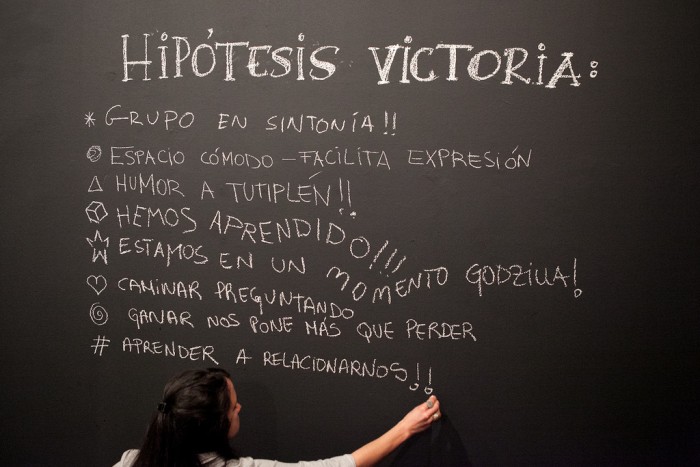 HIPÓTESIS VICTORIA:
* GRUPO EN SINTONÍA!!
ESPACIO CÓMODO - FACILITA EXPRESIÓN
HUMOR A TUTIPLÉN!!
HEMOS APRENDIDO!!!
ESTAMOS EN UN MOMENTO GODZILLA!
CAMINAR PREGUNTANDO
GANAR NOS PONE MÁS QUE PERDER
# APRENDER A RELACIONARNOS!!